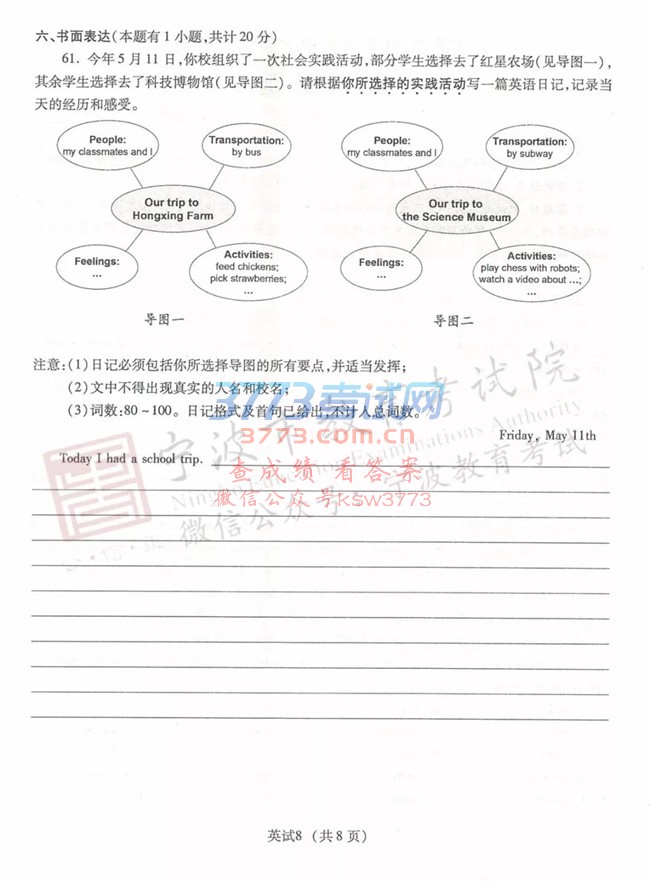 六、书面表达(本题有1小题,共计20分)
61. 今年5月11日,你校组织了一次社会实践活动,部分学生选择去了红星农场(见导图一),
其余学生选择去了科技博物馆(见导图二)。请根据你所选择的实践活动写一篇英语日记,记录当
天的经历和感受。
People:
my classmates and I
Transportation:
by bus
Our trip to
Hongxing Farm
Feelings:
...
Activities:
feed chickens;
pick strawberries;
...
导图一
People:
my classmates and I
Transportation:
by subway
Our trip to
the Science Museum
Feelings:
...
Activities:
play chess with robots;
watch a video about ...;
...
导图二
注意:(1)日记必须包括你所选择导图的所有要点,并适当发挥;
(2)文中不得出现真实的人名和校名;
(3)词数:80~100。日记格式及首句已给出,不计入总词数。
3773考试网
3773.com.cn
宁波市教育考试院
Ningbo Education Examinations Authority
Friday, May 11th
Today I had a school trip.
查成绩 看答案
微信公众号ksw3773
微信公众号 宁波教育考试
英试8 (共8页)